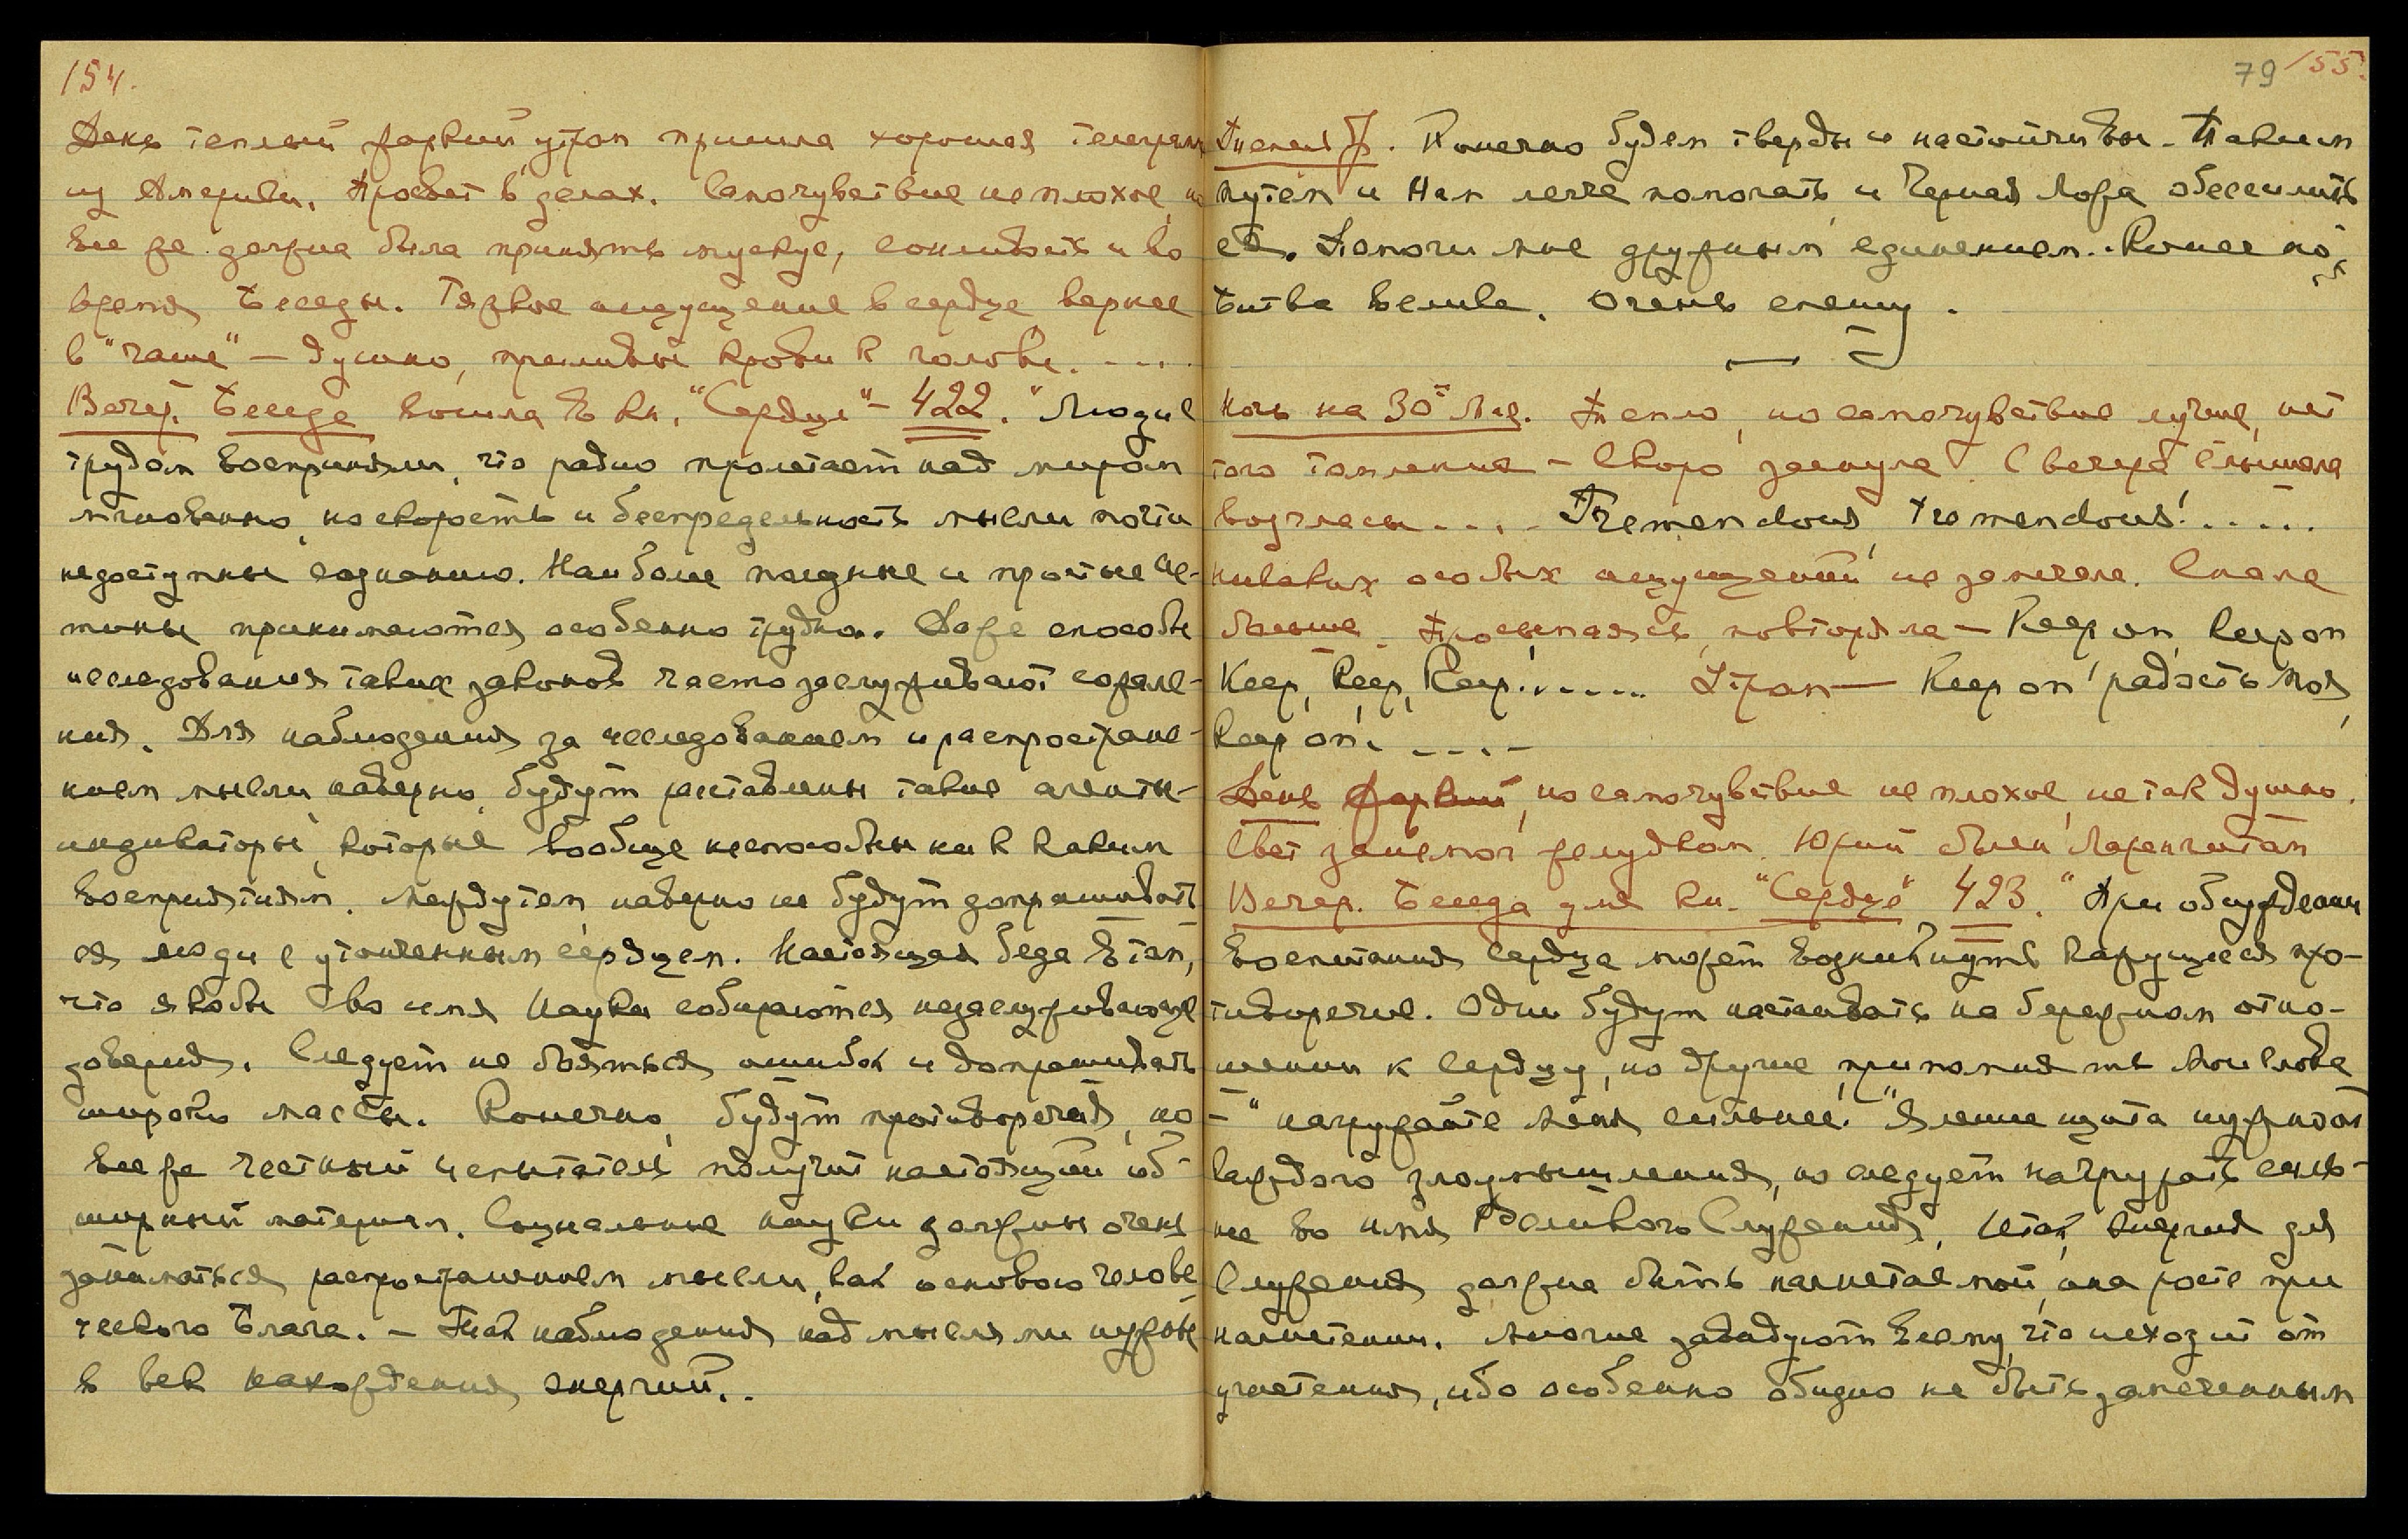 154.
День теплый жаркий утром пришла хорошая телеграм
из Америки. Просвет в делах. Самочувствие не плохое, но
все же должна была принять мускус, и во
время Беседы. Тяжкое ощущение в сердце вернее
в "чаше" – душно, приливы крови к голове. - - ..
Вечер. Беседа вошла в кн. "Сердце" – 422. "Люди с
трудом восприняли, что радио пролетает над миром
мгновенно, но скорость и беспредельность мысли почти
недоступны сознанию. Наиболее полезные и простые ис-
тины принимаются особенно трудно. Даже способы
исследования таких законов часто заслуживают сожале-
ния. Для наблюдения за исследованием и распростране-
нием мысли, наверно, будут поставлены такие агенты-
индикаторы, которые вообще неспособны ни к каким
восприятиям. Между тем, наверно не будут допрашивать
ся люди с утонченным сердцем. Настоящая беда в том,
что якобы во имя Науки собираются незаслуживающие
доверия. Следует не бояться ошибок и допрашивать
широко массы. Конечно, будут противоречия, но
все же честный испытатель получит настоящий об-
ширный материал. Социальные науки должны очень
заниматься распространением мысли, как основою челове
ческого Блага. – Так наблюдения над мыслями нужны
в век нахождения энергий..
79 155.
Письмо Ф. Конечно будем тверды и настойчивы. Таким
путем и Нам легче помогать и Черная Ложа обессилить
ся. Помоги мне дружным единением. Конечно,
Битва велика. Очень спешу.
Ночь на 30е Мая. Тепло, но самочувствие лучше, нет
того томления – скоро заснула. С вечера слышала
возгласы.... Tremendous, tremendous!.....
никаких особых ощущений не замечала. Спала
больше. Просыпаясь, повторяла – Keep on, keep on
Keep, Keep, Keep!...... Утром – Keep on, радость моя,
keep on!. - - . -
День жаркий, но самочувствие не плохое, не так душно.
Свет занемог желудком. Юрий
Вечер. Беседа для кн. "Сердце" 423. "При обсуждении
воспитания сердца может возникнуть кажущееся про-
тиворечие. Одни будут настаивать на бережном отно-
шении к сердцу, но другие припомнят Мои слова
– "нагружайте Меня сильнее." Явление щита нужно от
каждого злоумышления, но следует нагружать силь-
нее во имя Великого Служения. Итак, энергия для
Служения должна быть нагнетаемой, она росте при
нагнетении. Многие завидуют всему, что исходит от
угнетения, ибо особенно обидно не быть замеченным